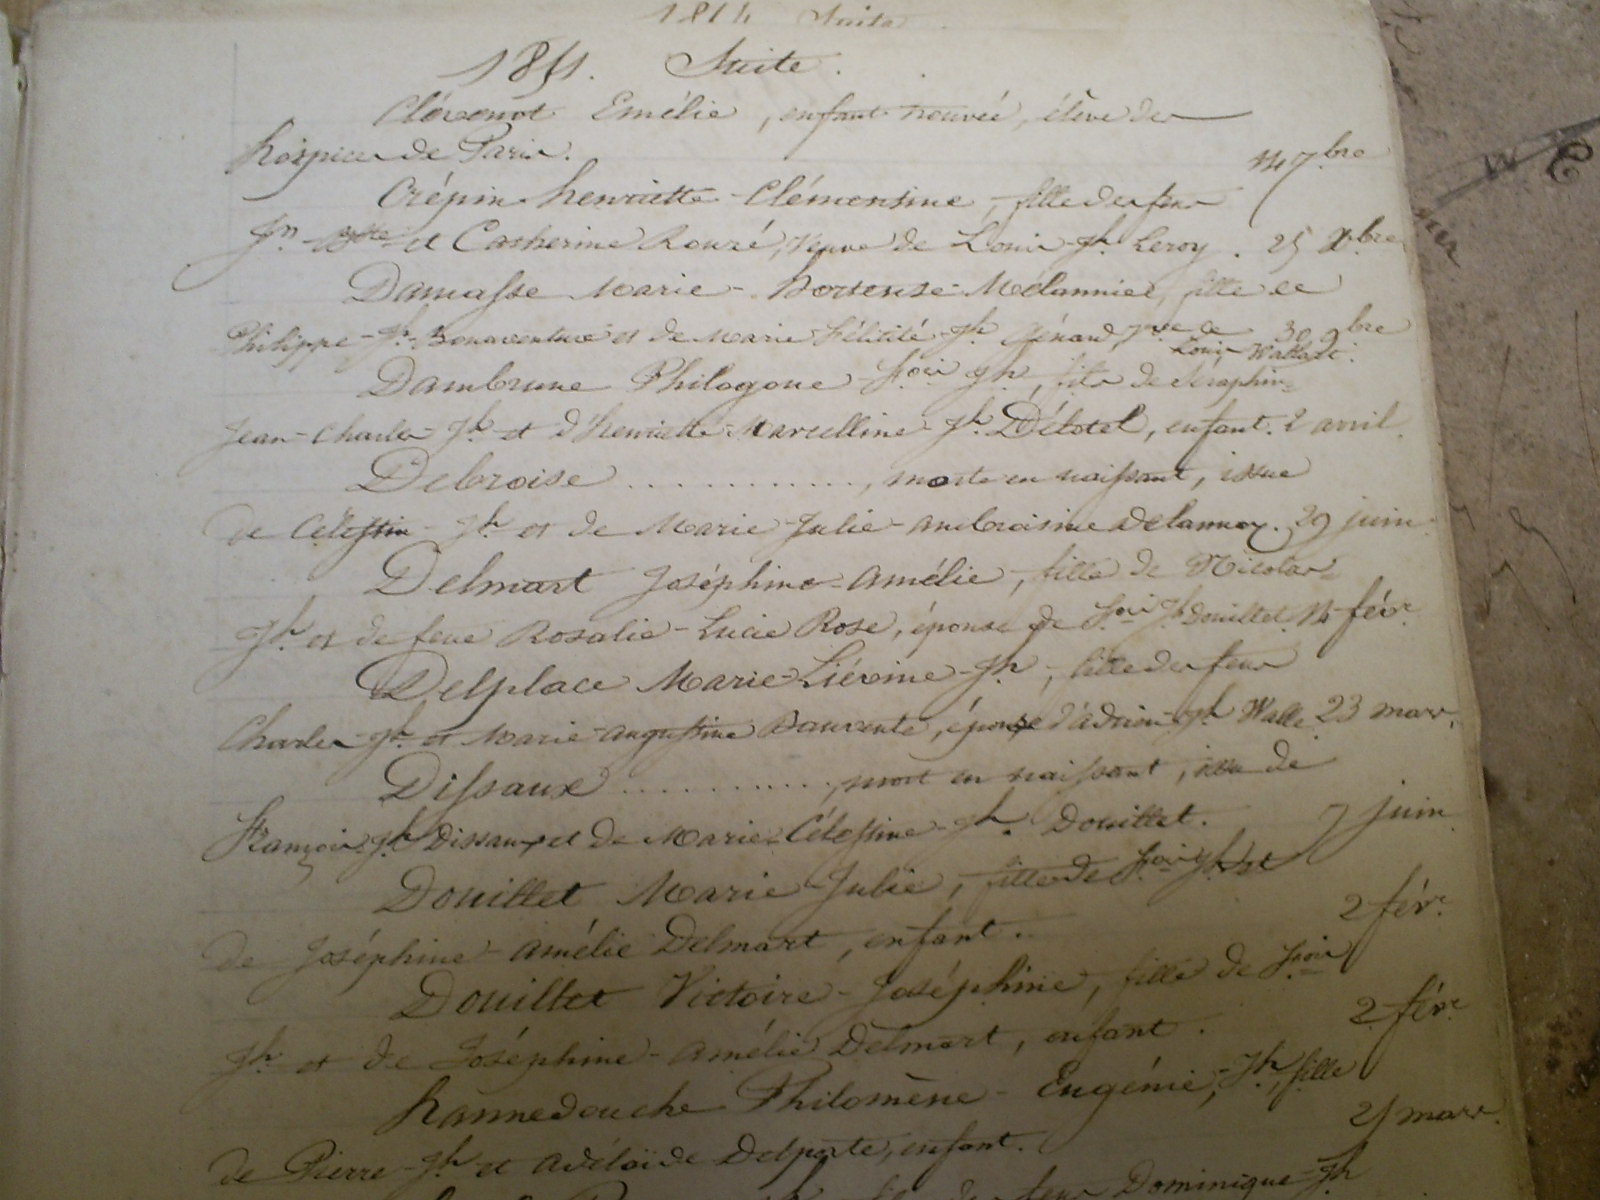 Suite
Suite.
Emélie, enfant trouvée, élève des
hospices de Paris. 14 7bre
Crépin Henriette-Clémentine, fille des feus
Jn-Btte et Catherine Rouzé, Veuve de Louis-Jh Leroy. 25 Xbre
Damasse Marie-Hortense-Mélannie, fille de
Philippe-Jh-Bonaventure et de Marie Félicité-Jh Génard, Vve de 30 9bre
Louis
Dambrune Philogone-Fois Jh, fils de Séraphin-
Jean-Charles-Jh et d'Henriette-Marcelline-Jh Délotel, enfant. 2 avril.
Debroise ............, morte en naissant, issue
de Célestin-Jh et de Marie-Julie-Ambroisine Delannoy. 29 juin
Delmart Joséphine-Amélie, fille de Nicolas-
Jh et de feue Rosalie-Lucie Rose, épouse de Fois Jh Douillet. 14 févr.
Delplace Marie-Liévine-Jh, fille des feus
Charles-Jh et Marie-Augustine, épouse d'Adrien-Jh Walle. 23 mars.
Dissaux ..........., mort en naissant, issu de
François-Jh Dissaux et de Marie-Célestine-Jh Douillet. 7 juin
Douillet Marie-Julie, fille de Fois-Jh et
de Joséphine-Amélie Delmart, enfant. 2 févr.
Douillet Victoire-Joséphine, fille de Fois
Jh et de Joséphine-Amélie Delmart, enfant. 2 févr
Hannedouche Philomène-Eugénie-Jh, fille
de Pierre-Jh et Adélaïde Delporte, enfant. mars.
feus Dominique-Jh